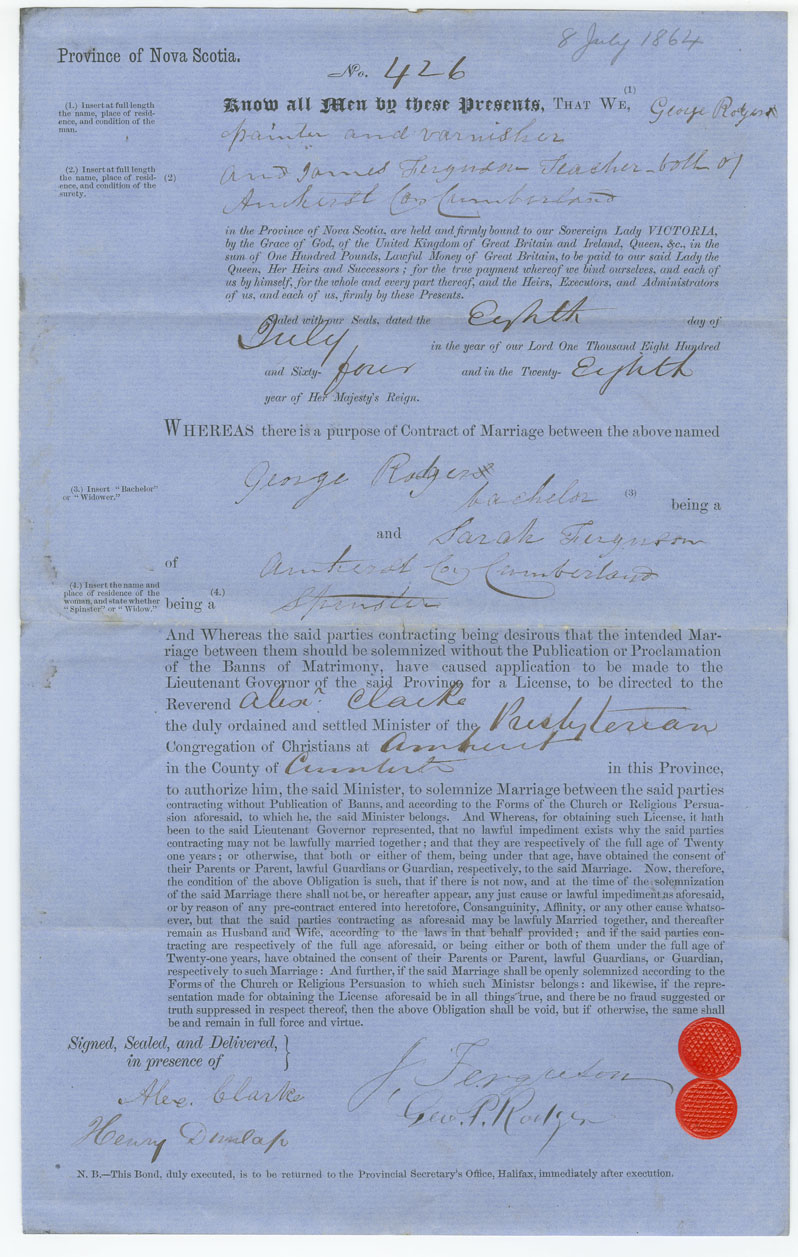 8 July 1864
Province of Nova Scotia.
No. 426
(1.) Insert at full length
the name, place of resid-
ence, and condition of the
man.
Know all Men by these Presents, THAT WE, (1) George Rodgers
painter and varnisher
(2.) Insert at full length
the name, place of resid-
ence, and condition of the
surety.
(2) and James Ferguson Teacher both of
Amherst Co Cumberland
in the Province of Nova Scotia, are held and firmly bound to our Sovereign Lady VICTORIA,
by the Grace of God, of the United Kingdom of Great Britain and Ireland, Queen, &c., in the
sum of One Hundred Pounds, Lawful Money of Great Britain, to be paid to our said Lady the
Queen, Her Heirs and Successors; for the true payment whereof we bind ourselves, and each of
us by himself, for the whole and every part thereof, and the Heirs, Executors, and Administrators
of us, and each of us, firmly by these Presents.
Sealed with our Seals, dated the Eighth day of
July in the year of our Lord One Thousand Eight Hundred
and Sixty- four and in the Twenty- Eighth
year of Her Majesty's Reign.
WHEREAS there is a purpose of Contract of Marriage between the above named
George Rodgers
(3.) Insert "Bachelor"
or "Widower."
bachelor (3) being a
and Sarah Ferguson
of Amherst Co Cumberland
(4.) Insert the name and
place of residence of the
woman, and state whether
"Spinster" or "Widow."
being a (4.) Spinster
And Whereas the said parties contracting being desirous that the intended Mar-
riage between them should be solemnized without the Publication or Proclamation
of the Banns of Matrimony, have caused application to be made to the
Lieutenant Governor of the said Province for a License, to be directed to the
Reverend Alexr. Clarke
the duly ordained and settled Minister of the Presbyterian
Congregation of Christians at Amherst
in the County of Cumberld in this Province,
to authorize him, the said Minister, to solemnize Marriage between the said parties
contracting without Publication of Banns, and according to the Forms of the Church or Religious Persua-
sion aforesaid, to which he, the said Minister belongs. And Whereas, for obtaining such License, it hath
been to the said Lieutenant Governor represented, that no lawful impediment exists why the said parties
contracting may not be lawfully married together; and that they are respectively of the full age of Twenty
one years; or otherwise, that both or either of them, being under that age, have obtained the consent of
their Parents or Parent, lawful Guardians or Guardian, respectively, to the said Marriage. Now, therefore,
the condition of the above Obligation is such, that if there is not now, and at the time of the solemnization
of the said Marriage there shall not be, or hereafter appear, any just cause or lawful impediment as aforesaid,
or by reason of any pre-contract entered into heretofore, Consanguinity, Affinity, or any other cause whatso-
ever, but that the said parties contracting as aforesaid may be lawfuly Married together, and thereafter
remain as Husband and Wife, according to the laws in that behalf provided; and if the said parties con-
tracting are respectively of the full age aforesaid, or being either or both of them under the full age of
Twenty-one years, have obtained the consent of their Parents or Parent, lawful Guardians, or Guardian,
respectively to such Marriage: And further, if the said Marriage shall be openly solemnized according to the
Forms of the Church or Religious Persuasion to which such Ministsr belongs: and likewise, if the repre-
sentation made for obtaining the License aforesaid be in all things true, and there be no fraud suggested or
truth suppressed in respect thereof, then the above Obligation shall be void, but if otherwise, the same shall
be and remain in full force and virtue.
Signed, Sealed, and Delivered,
in presence of
J. Ferguson
Alex. Clarke
Geo. P. Rodgers
Henry Dunlap
N. B.—This Bond, duly executed, is to be returned to the Provincial Secretary's Office, Halifax, immediately after execution.